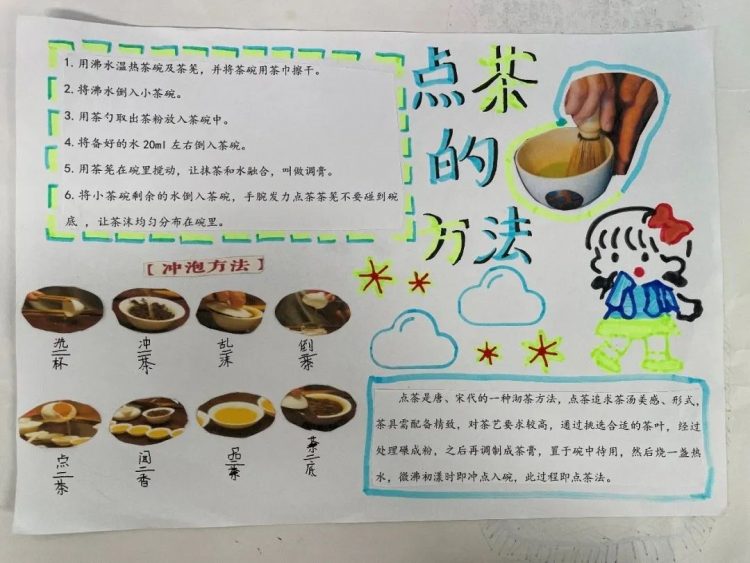 点茶
的
方法
1. 用沸水温热茶碗及茶筅，并将茶碗用茶巾擦干。
2. 将沸水倒入小茶碗。
3. 用茶勺取出茶粉放入茶碗中。
4. 将备好的水20ml 左右倒入茶碗。
5. 用茶筅在碗里搅动，让抹茶和水融合，叫做调膏。
6. 将小茶碗剩余的水倒入茶碗，手腕发力点茶茶筅不要碰到碗
底 ，让茶沫均匀分布在碗里。
【冲泡方法】
洗杯
冲茶
乱沫
倒茶
点茶
闻香
品茶
茶底
点茶是唐、宋代的一种沏茶方法，点茶追求茶汤美感、形式，
茶具需配备精致，对茶艺要求较高，通过挑选合适的茶叶，经过
处理碾成粉，之后再调制成茶膏，置于碗中待用，然后烧一盏热
水，微沸初漾时即冲点入碗，此过程即点茶法。